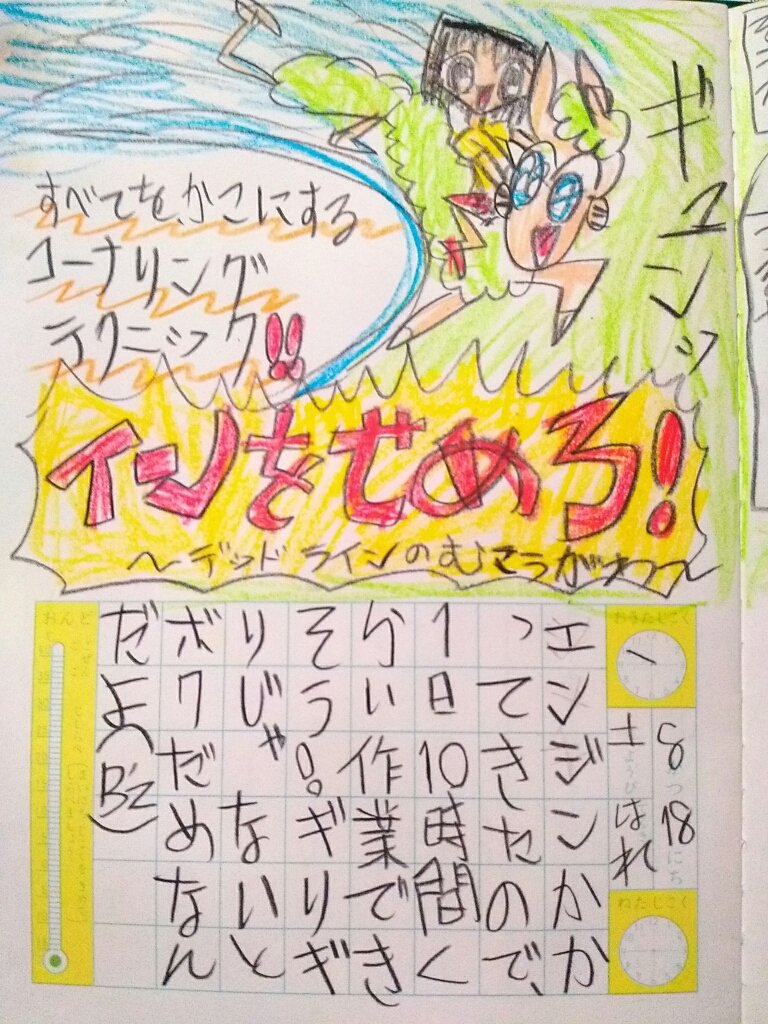 ギュンッ
すべてをかこにする
コーナリング
テクニック!!
インをせめろ!
〜デッドラインのむこうがわ〜
おきたじこく
8がつ18にち
土ようび はれ
ねたじこく
エンジンかか
ってきたので、
1日10時間く
らい作業でき
そう!ギリギ
りじゃないと
ボクだめなん
だよ(B'z)
おんど